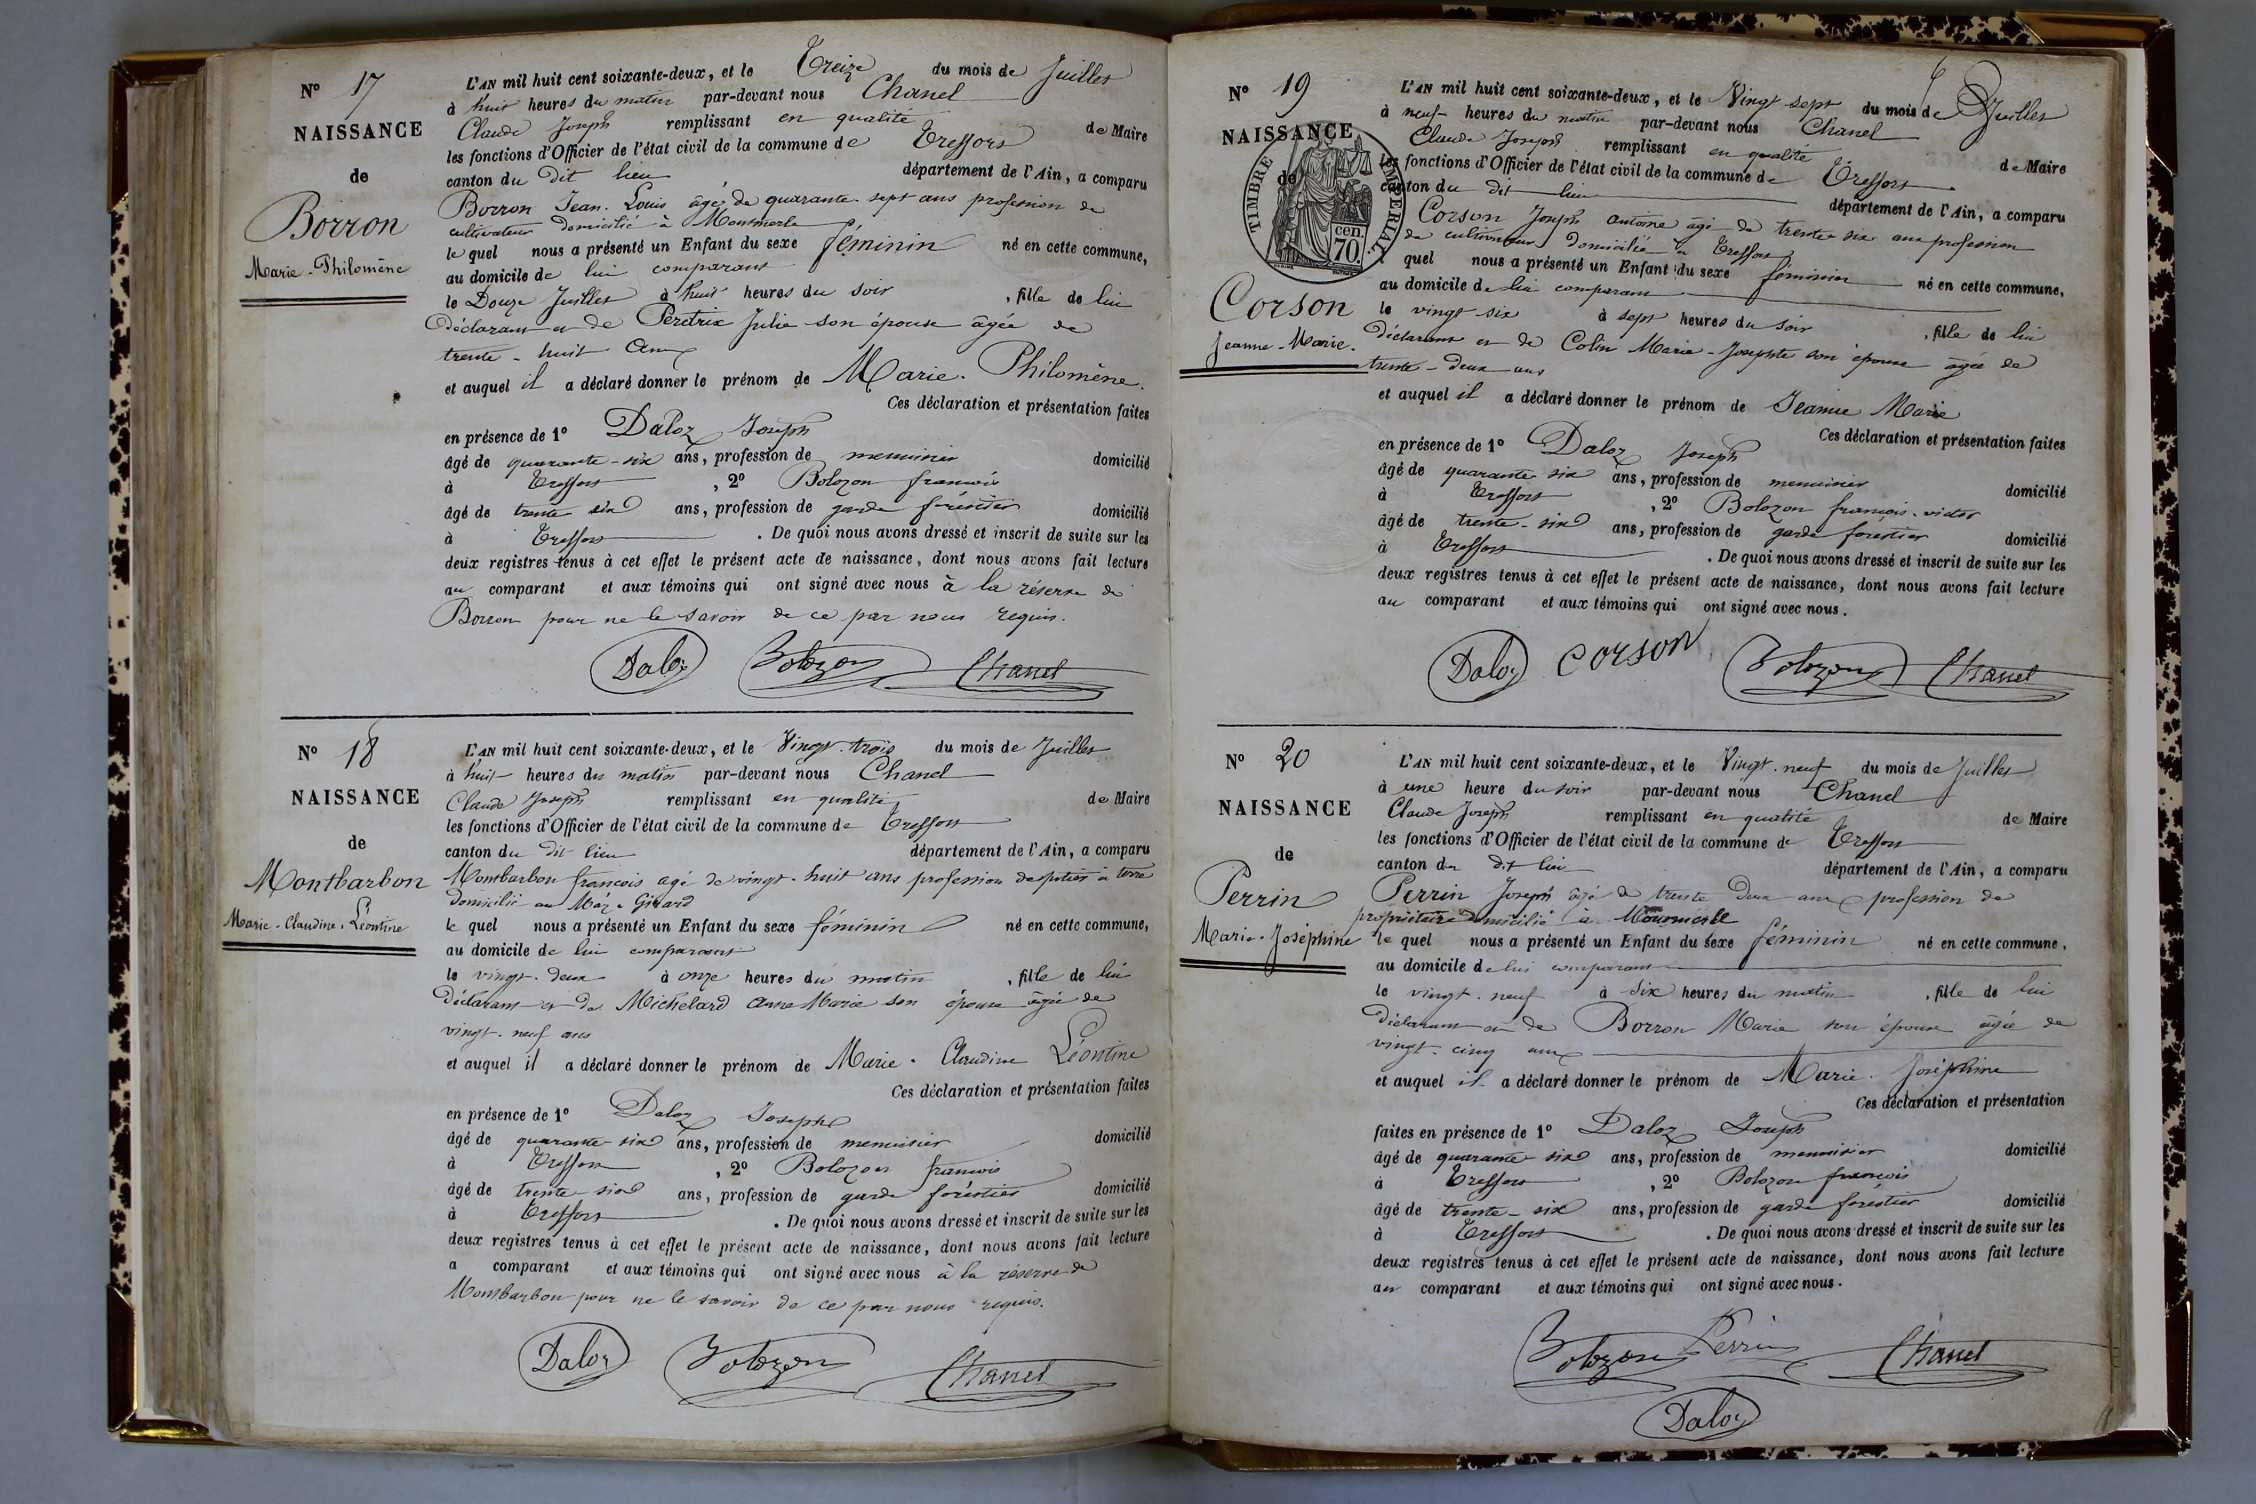 N° 17
NAISSANCE
de
Borron
Marie-Philomène
L'AN mil huit cent soixante-deux, et le Treize du mois de Juillet
à huit heures du matin par-devant nous Chanel
Claude Joseph remplissant en qualité de Maire
les fonctions d'Officier de l'état civil de la commune de Treffort
canton du dit lieu département de l'Ain, a comparu
Borron Jean-Louis âgé de quarante-sept ans profession de
cultivateur domicilié à Montmerle
le quel nous a présenté un Enfant du sexe féminin né en cette commune,
au domicile de lui comparant
le Douze Juillet à huit heures du soir, fille de lui
déclarant et de Perdrix Julie son épouse âgée de
trente-huit ans
et auquel il a déclaré donner le prénom de Marie-Philomène.
Ces déclaration et présentation faites
en présence de 1° Daloz Joseph
âgé de quarante-six ans, profession de menuisier domicilié
à Treffort, 2° Bolozon francois
âgé de trente six ans, profession de garde foréstier domicilié
à Treffort. De quoi nous avons dressé et inscrit de suite sur les
deux registres tenus à cet effet le présent acte de naissance, dont nous avons fait lecture
au comparant et aux témoins qui ont signé avec nous à la réserve de
Borron pour ne le savoir de ce par nous requis.
Daloz Bolozon Chanel
N° 18
NAISSANCE
de
Montbarbon
Marie-Claudine-Léontine
L'AN mil huit cent soixante-deux, et le Vingt-trois du mois de Juillet
à huit heures du matin par-devant nous Chanel
Claude Joseph remplissant en qualité de Maire
les fonctions d'Officier de l'état civil de la commune de Treffort
canton du dit lieu département de l'Ain, a comparu
Montbarbon francois agé de vingt-huit ans profession de potier à terre
domicilié au Máz-Girard
le quel nous a présenté un Enfant du sexe féminin né en cette commune,
au domicile de lui comparant
le vingt-deux à onze heures du matin, fille de lui
déclarant et de Michelard Anne Marie son épouse âgée de
vingt-neuf ans
et auquel il a déclaré donner le prénom de Marie-Claudine Léontine
Ces déclaration et présentation faites
en présence de 1° Daloz Joseph
âgé de quarante-six ans, profession de menuisier domicilié
à Treffort, 2° Bolozon francois
âgé de trente-six ans, profession de garde foréstier domicilié
à Treffort. De quoi nous avons dressé et inscrit de suite sur les
deux registres tenus à cet effet le présent acte de naissance, dont nous avons fait lecture
a comparant et aux témoins qui ont signé avec nous à la réserve de
Montbarbon pour ne le savoir de ce par nous requis.
Daloz Bolozon Chanel
N° 19
NAISSANCE
de
TIMBRE IMPERIAL
70 cen.
Corson
Jeanne-Marie.
L'AN mil huit cent soixante-deux, et le Vingt sept du mois de Juillet
à neuf heures du matin par-devant nous Chanel
Claude Joseph remplissant en qualité de Maire
les fonctions d'Officier de l'état civil de la commune de Treffort
canton du dit lieu département de l'Ain, a comparu
Corson Joseph antoine âgé de trente six ans profession
de cultivateur domicilié à Treffort
quel nous a présenté un Enfant du sexe féminin né en cette commune,
au domicile de lui comparant
le vingt-six à sept heures du soir, fille de lui
déclarant et de Colin Marie-Josephte son épouse âgée de
trente-deux ans
et auquel il a déclaré donner le prénom de Jeanne Marie
Ces déclaration et présentation faites
en présence de 1° Daloz Joseph
âgé de quarante six ans, profession de menuisier domicilié
à Treffort, 2° Bolozon françois-victor
âgé de trente-six ans, profession de garde forestier domicilié
à Treffort. De quoi nous avons dressé et inscrit de suite sur les
deux registres tenus à cet effet le présent acte de naissance, dont nous avons fait lecture
au comparant et aux témoins qui ont signé avec nous.
Daloz corson Bolozon Chanel
N° 20
NAISSANCE
de
Perrin
Marie-Joséphine
L'AN mil huit cent soixante-deux, et le Vingt-neuf du mois de Juillet
à une heure du soir par-devant nous Chanel
Claude Joseph remplissant en qualité de Maire
les fonctions d'Officier de l'état civil de la commune de Treffort
canton du dit lieu département de l'Ain, a comparu
Perrin Joseph âgé de trente deux ans profession de
propriétaire domicilié à Montmerle
le quel nous a présenté un Enfant du sexe féminin né en cette commune,
au domicile de lui comparant
le vingt-neuf à six heures du matin, fille de lui
déclarant et de Borron Marie son épouse âgée de
vingt-cinq ans
et auquel il a déclaré donner le prénom de Marie-Joséphine
Ces déclaration et présentation
faites en présence de 1° Daloz Joseph
âgé de quarante six ans, profession de menuisier domicilié
à Treffort, 2° Bolozon francois
âgé de trente-six ans, profession de garde foréstier domicilié
à Treffort. De quoi nous avons dressé et inscrit de suite sur les
deux registres tenus à cet effet le présent acte de naissance, dont nous avons fait lecture
au comparant et aux témoins qui ont signé avec nous.
Bolozon Perrin Chanel
Daloz